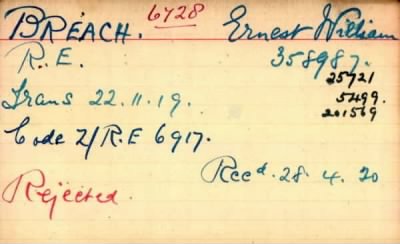 BREACH. 6728 Ernest William
R.E. 358987.
25721
5499.
Trans 22.11.19. 201569
Code Z/R.E 6917.
Recd. 28. 4. 20
Rejected.